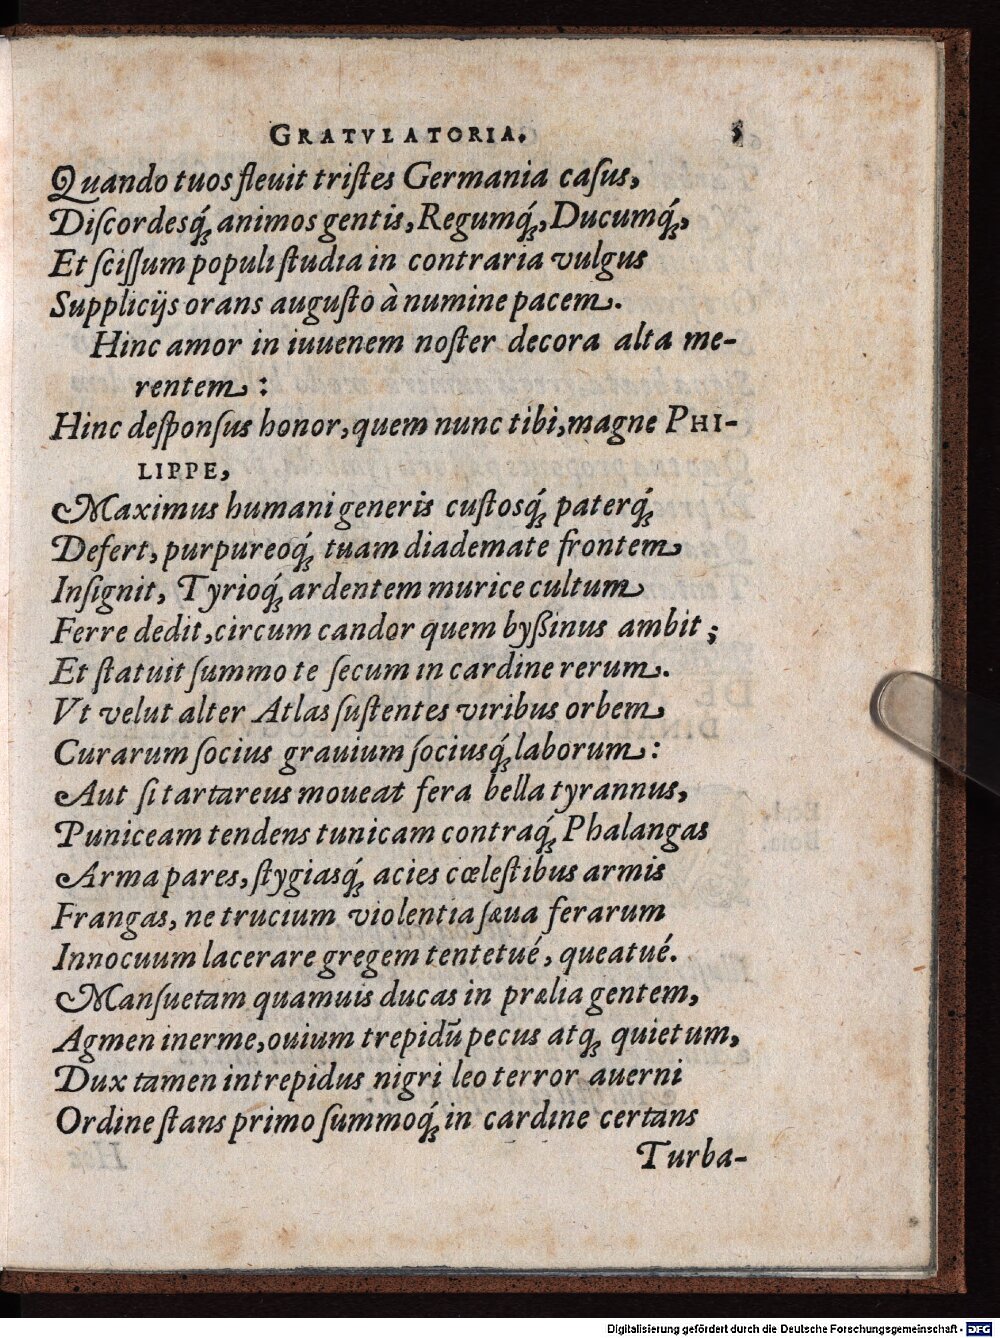 GRATVLATORIA. 5
Quando tuos fleuit tristes Germania casus,
Discordesq́; animos gentis, Regumq́;, Ducumq́;,
Et scissum populi studia in contraria vulgus
Supplicijs orans augusto à numine pacem.
Hinc amor in iuuenem noster decora alta me-
rentem:
Hinc desponsus honor, quem nunc tibi, magne PHI-
LIPPE,
Maximus humani generis custosq́; paterq́;
Defert, purpureoq́; tuam diademate frontem
Insignit, Tyrioq́; ardentem murice cultum
Ferre dedit, circum candor quem byßinus ambit;
Et statuit summo te secum in cardine rerum.
Vt velut alter Atlas sustentes viribus orbem
Curarum socius grauium sociusq́; laborum:
Aut si tartareus moueat fera bella tyrannus,
Puniceam tendens tunicam contraq́; Phalangas
Arma pares, stygiasq́; acies cœlestibus armis
Frangas, ne trucium violentia sæua ferarum
Innocuum lacerare gregem tentetué, queatué.
Mansuetam quamuis ducas in prælia gentem,
Agmen inerme, ouium trepidũ pecus atq; quietum,
Dux tamen intrepidus nigri leo terror auerni
Ordine stans primo summoq́; in cardine certans
Turba-
Digitalisierung gefördert durch die Deutsche Forschungsgemeinschaft - DFG